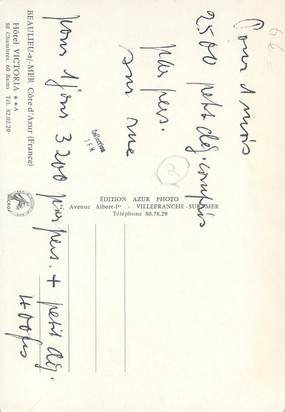 Pour 1 mois
2500 petit déj. compris
par pers.
sur rue
pour 1 jour 3200 par pers. + petit déj.
400 frs
Hôtel VICTORIA ★★A
BEAULIEU-s/-MER Côte d'Azur (France)
88 Chambres, 60 Bains Tél. 82.02.20
Collection
ÉDITION AZUR PHOTO
Avenue Albert-Iᵉʳ - VILLEFRANCHE-SUR-MER
Téléphone 80.78.29